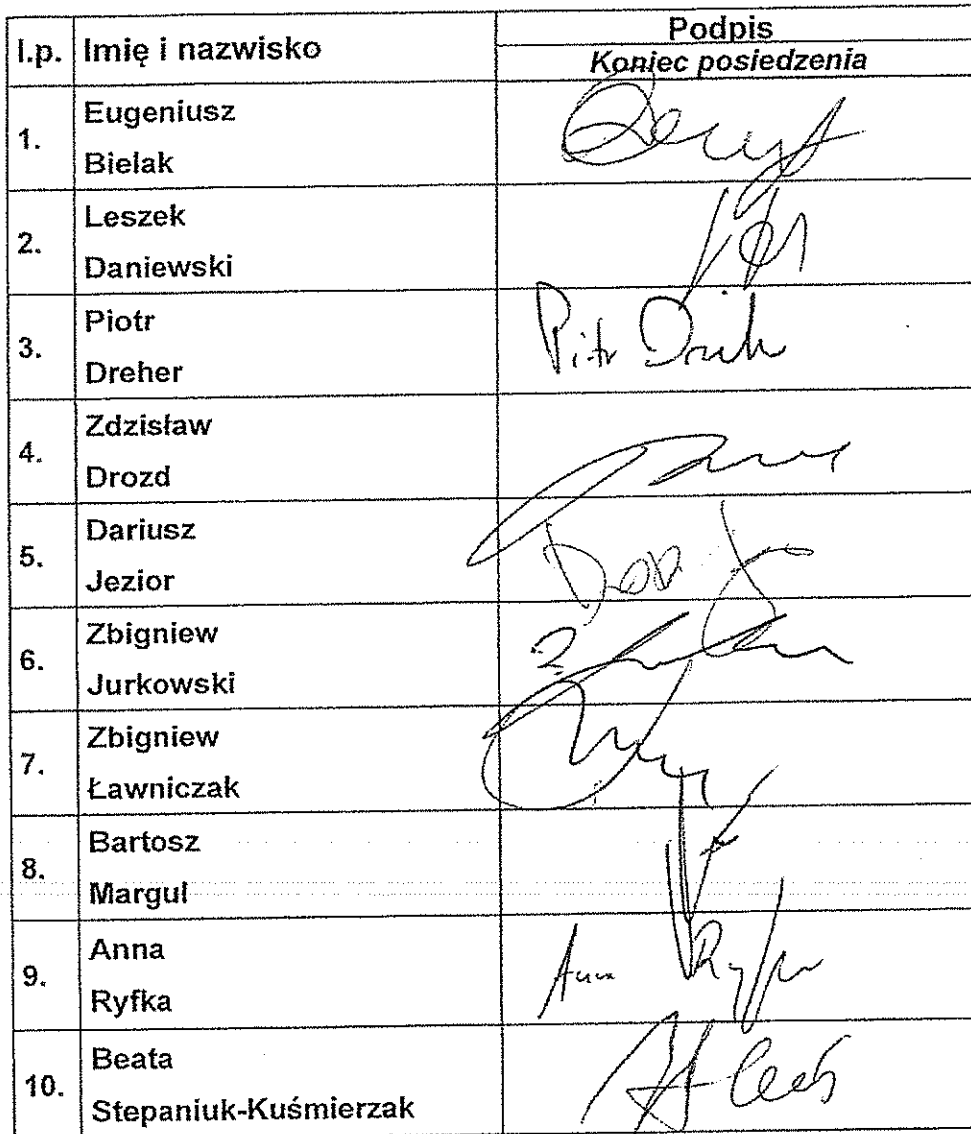 l.p. Imię i nazwisko Podpis
Koniec posiedzenia
1. Eugeniusz
Bielak
2. Leszek
Daniewski
3. Piotr
Dreher
4. Zdzisław
Drozd
5. Dariusz
Jezior
6. Zbigniew
Jurkowski
7. Zbigniew
Ławniczak
8. Bartosz
Margul
9. Anna
Ryfka
10. Beata
Stepaniuk-Kuśmierzak